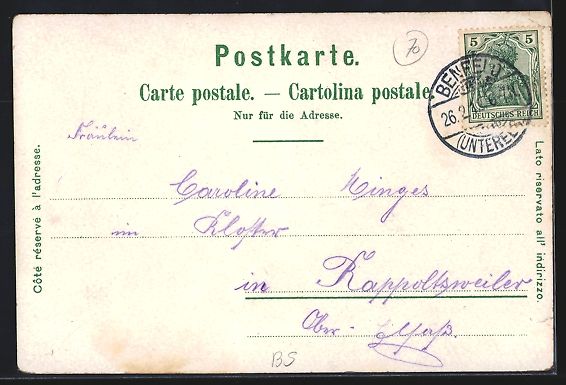 70
Postkarte.
Carte postale. — Cartolina postale.
Nur für die Adresse.
5 5
DEUTSCHES REICH
BENFELD
26.2
(UNTEREL
Fräulein
Caroline Hinges
im Kloster
in Rappoltsweiler
Ober-Elsaß.
Côté réservé à l'adresse.
Lato riservato all' indirizzo.
BS